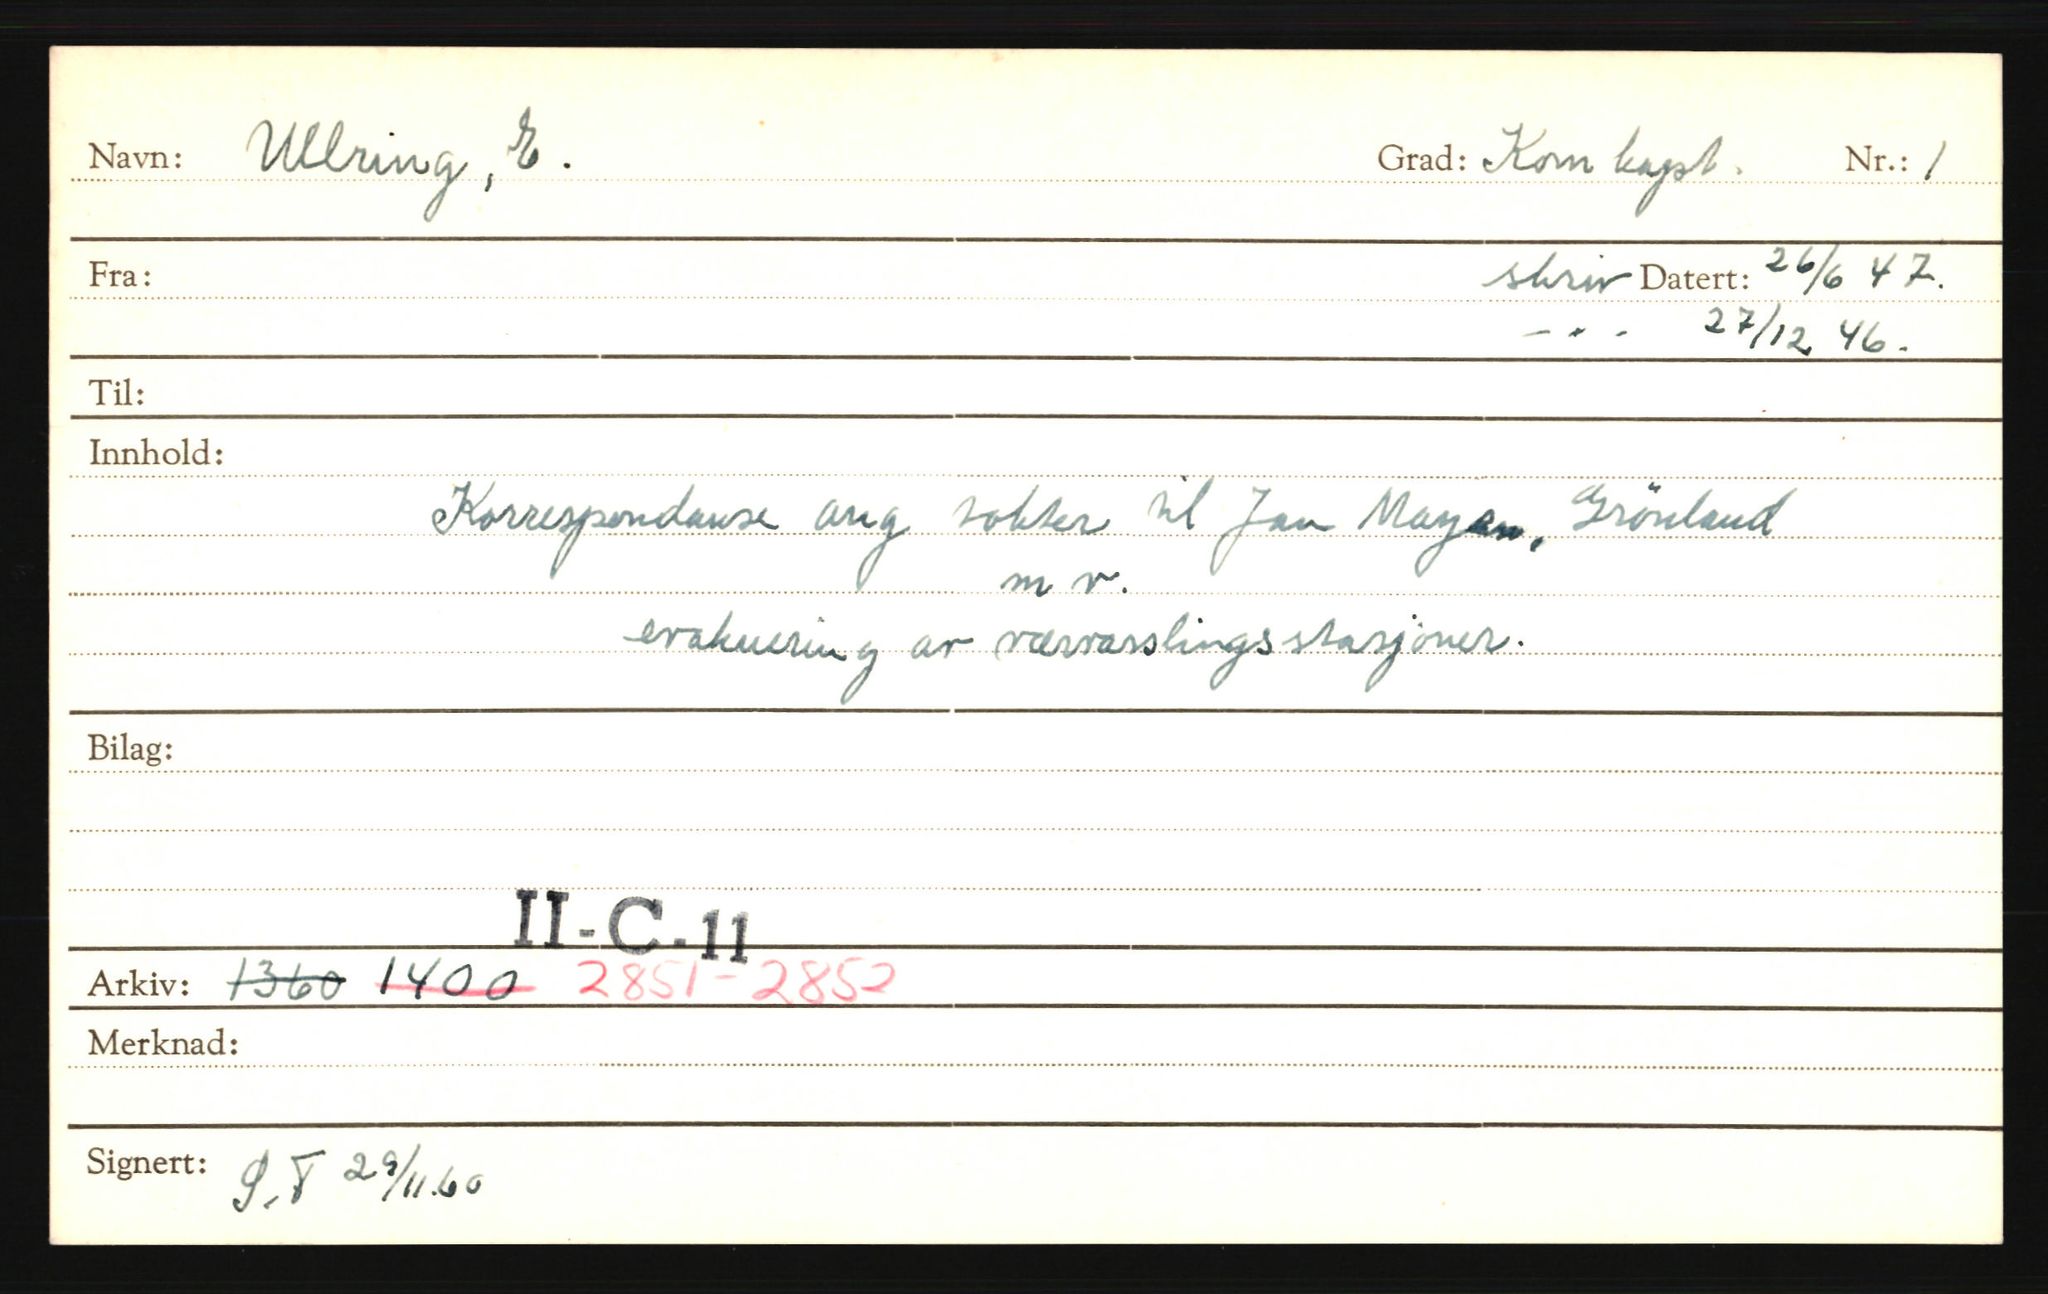 Navn: Ullring, E. Grad: Kom kapt. Nr.: 1
Fra: skriv Datert: 26/6 47.
- " - 27/12 46.
Til:
Innhold:
Korrespondanse ang tokter til Jan Mayen, Grönland
m v.
evakuering av værvarslingsstasjoner.
Bilag:
II-C-11
Arkiv: 1360 1400 2851-2852
Merknad:
Signert: S.T 29/11.60